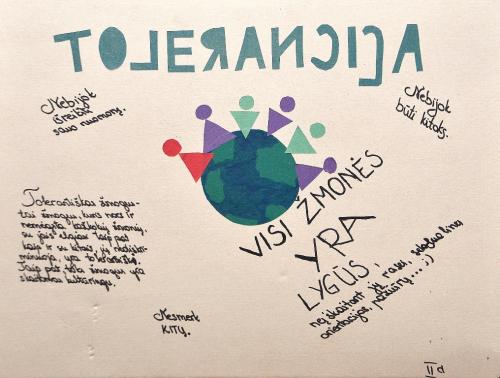 TOLERANCIJA
Nebijok
išreikšti
savo nuomonę.
Nebijok
būti kitoks.
žmogus-
tai žmogus, kuris nors ir
nemėgsta kažkokių žmonių,
su jais elgiasi taip pat
kaip ir su kitais, jų nediskri-
minuoja, yra
Taip pat toks žmogus yra
skaitomas kultūringu.
VISI ŽMONĖS
YRA
LYGŪS,
neįskaitant jų rasės,
orientacijos, pažiūrų... :)
Nesmerk
KITŲ.
II d